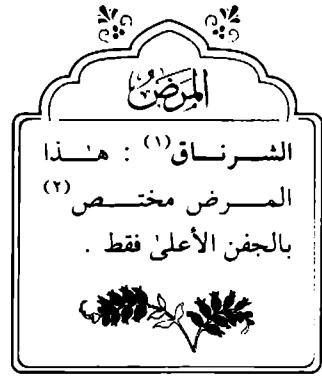 المَرَضُ
الشرناق(١) : هٰذا
المرض مختص(٢)
بالجفن الأعلىٰ فقط .